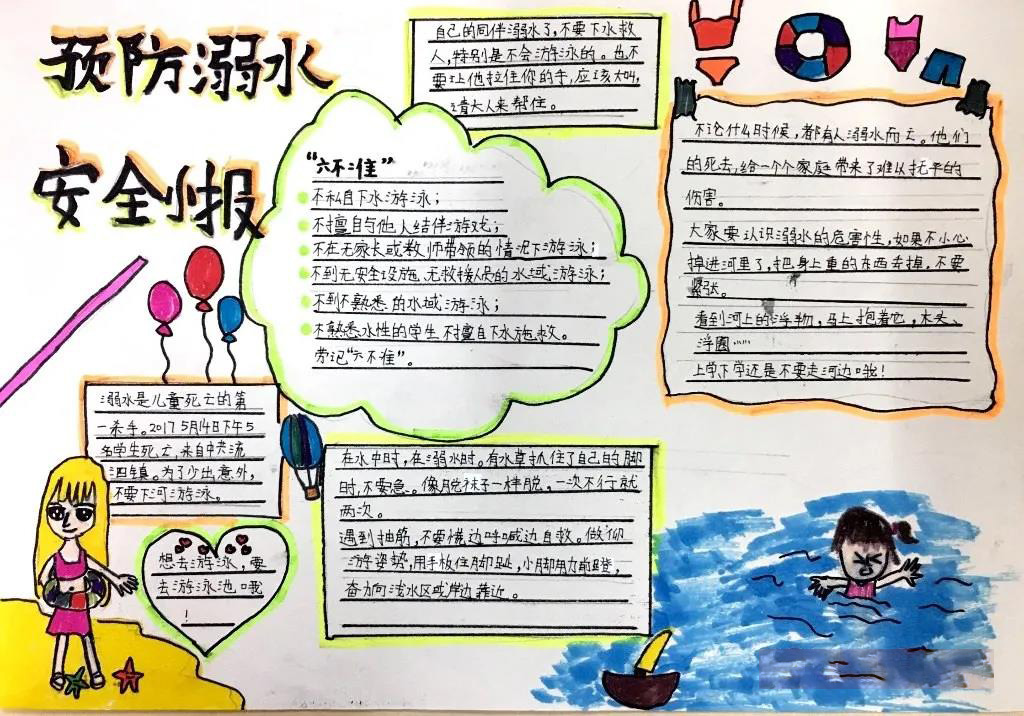 预防溺水
安全小报
自己的同伴溺水了,不要下水救
人,特别是不会游泳的。也不
要让他拉住你的手,应该大叫,
请大人来帮住。
“六不准”
不私自下水游泳;
不擅自与他人结伴游戏;
不在无家长或教师带领的情况下游泳;
不到无安全设施、无救援人员的水域游泳;
不到不熟悉的水域游泳;
不熟悉水性的学生不擅自下水施救。
劳记“六不准”。
不论什么时候,都有人溺水而亡。他们
的死去,给一个个家庭带来了难以抚平的
伤害。
大家要认识溺水的危害性,如果不小心
掉进河里了,把身上重的东西去掉,不要
紧张。
看到河上的浮物,马上抱着它,木头、
浮圈……
上学下学还是不要走河边哦!
溺水是儿童死亡的第
一杀手。2017 5月14日下午5
名学生死亡,来自中
镇。为了少出意外,
不要下河游泳。
想去游泳,要
去游泳池哦
!
在水中时,在溺水时。有水草抓住了自己的脚
时,不要急。像脱袜子一样脱,一次不行就
两次。
遇到抽筋,不要慌边呼喊边自救。做仰
游姿势,用手板住脚趾,小脚用力前蹬,
奋力向浅水区或岸边靠近。